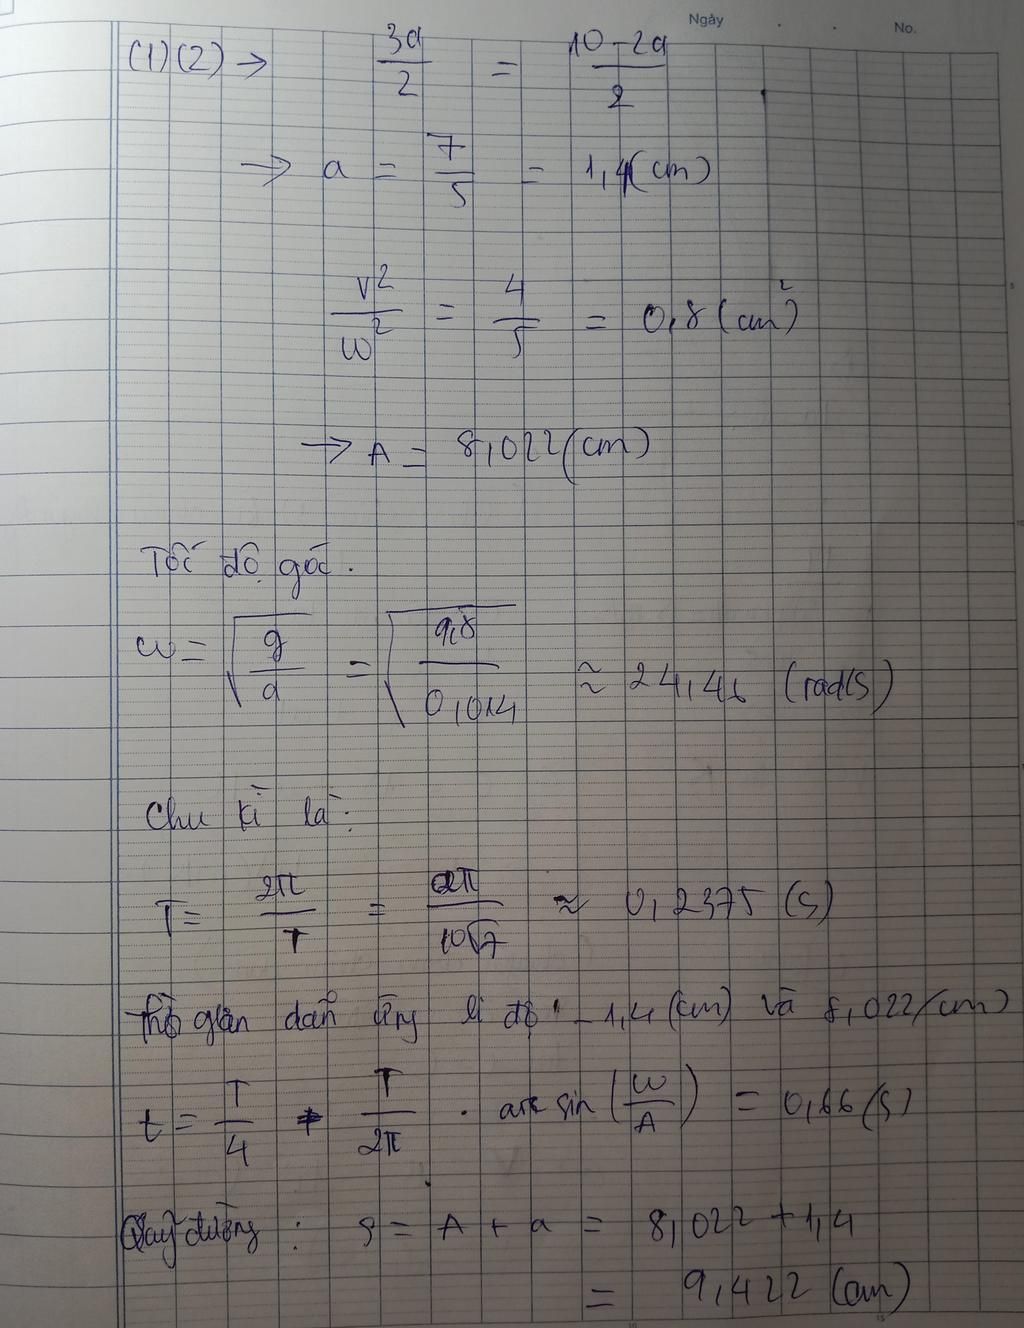 Ngày . . No.
(1)(2) → 3a/2 = 10-2a/2
→ a = 7/5 = 1,4(cm)
v²/ω² = 4/5 = 0,8 (cm²)
→ A = 8,022 (cm)
Tốc độ góc.
ω = √(g/a) = √(9,8/0,014) ≈ 24,46 (rad/s)
Chu kì là:
T = 2π/T = 2π/10√7 ≈ 0,2375 (s)
gian dãn ứng li độ -1,4 (cm) và 8,022 (cm)
t = T/4 + T/2π . arc sin (ω/A) = 0,66 (s)
Quãng đường : s = A + a = 8,022 + 1,4
= 9,422 (cm)